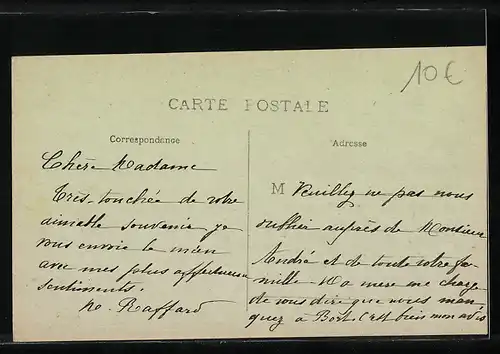 10€
CARTE POSTALE
Correspondance
Adresse
Chère Madame
Très touchée de votre
aimable souvenir je
vous envoie le mien
avec mes plus affectueux
sentiments.
Raffard
M Veuillez ne pas nous
oublier auprès de Monsieur
André et de toute votre fa-
mille. Ma mère me charge
de vous dire que vous man-
quez à Bort. C'est bien mon avis